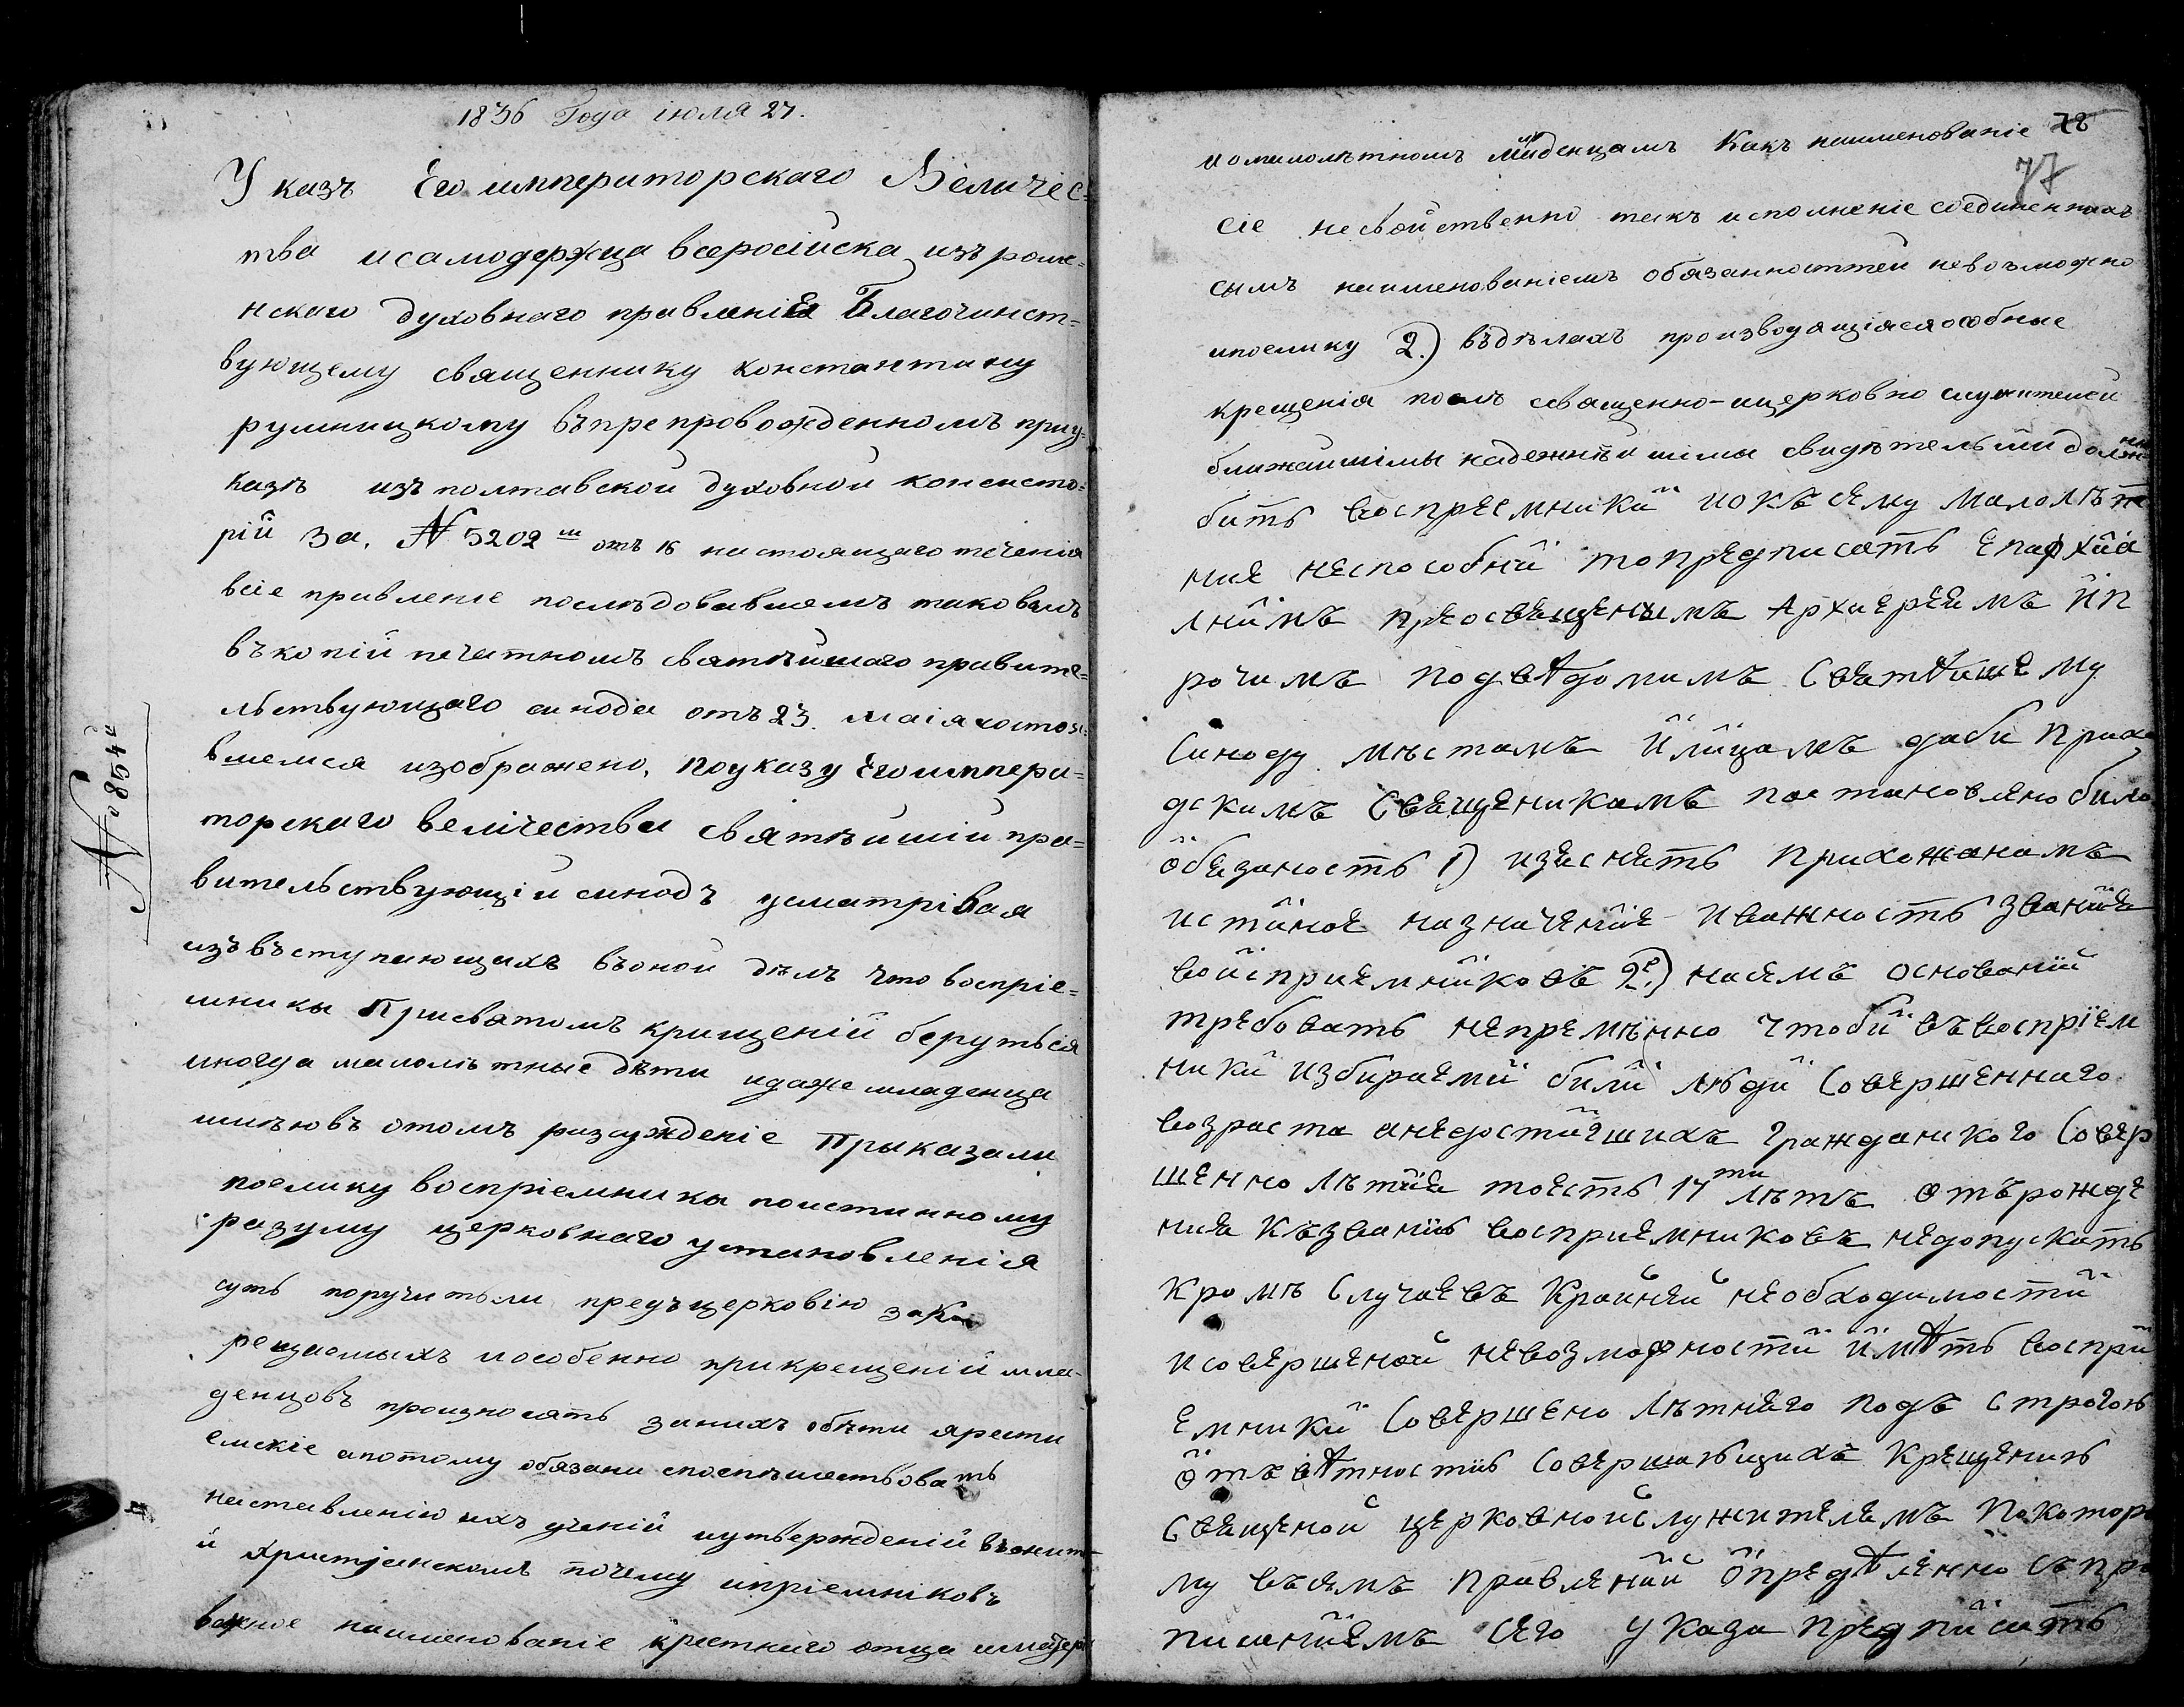 1836 Года июля 27.
Указъ Его императорскаго Величес=
тва и самодержца всеросійска изъ роме=
нскаго духовнаго правленія Благочинст=
вующему священнику константину
румницкому въ препровожденномъ при у=
казѣ изъ полтавской духовной консисто=
рій За. № 5202 ш отъ 16 настоящаго теченія
в сіе правленіе послѣдовавшемъ таковымъ
въ копій печатномъ святѣйшаго правите=
льствующаго синода отъ 23. маія состоя=
вшемся изображено, по указу Его импера=
торскаго велічества святѣйшій пра=
вительствующій синодъ усматрівая
изъ въступающихъ въ оной дѣлъ что воспріе=
мники При святомъ крищеній беруться
иногда малолѣтные дѣти и даже младенца
имѣювъ отомъ разсужденіе Прыказали
поелику воспріемники по истинному
разуму церковнаго установленія
суть поручитьли предъ церковію за К
рещаемыхъ и особенно при крещеній мла-
денцовъ произносять за нихъ обѣти
емскіе а потому обязани споспѣшествовать
наставленію ихъ ученій и утвержденій въ
й христіянскомъ почему и пріемніковъ
важное наименованіе крестнаго отца и матери
№ 854й
78
77
и омалолѣтномъ младенцамъ Какъ наименованіе
сіе несвойственно такъ и сполненіе соединенныхъ
сымъ наименованіемъ обязанносттей невозможно
и поелику 2.) въ дѣлахъ производящіяся особные
крещенія посль священно-ицерковно служителей
ближайшімы надежнѣйшімы свидѣтельми должни
бить воспреемники и окъ сему малолѣт
ние неспособнй то предписать Епархиа
лнимъ преосвященымъ Архиереемъ ип
рочимъ подвѣдомимъ Святѣишему
Синоду мѣстамъ и лицамъ даби Прихо
дскимъ Священикамъ постановлено било
обезаность 1) изяснять прихожанамъ
истиное назначение и важность звания
воисприемниковъ 2е.) на семъ основаній
требовать непремѣнно чтоби въ воспрїем
ники избираеми били люди Совершеннаго
возраста а недостигшихъ гражданского Совер
шеннолѣтия тоесть 14ти лѣтъ отъ рожде
ния къ званию восприемниковъ недопускать
кромѣ Случаевъ крайней необходимости
и совершеной невозможности имѣть воспри
емники Совершено лѣтнего подъ строгою
отъвѣтностию Совершающихъ крещению
Священой церковной служителемъ Покотор
му въ семъ правлений опредѣленно съ про
писаниемъ сего Указа предписать